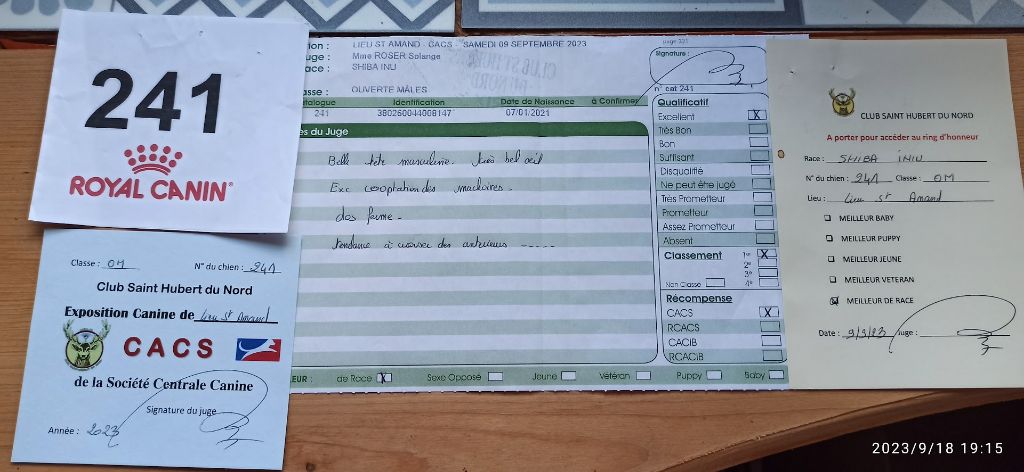 241
ROYAL CANIN
Classe : OM N° du chien : 241
Club Saint Hubert du Nord
Exposition Canine de Lieu St Amand
CACS
de la Société Centrale Canine
Signature du juge
Année : 2023
ion : LIEU ST AMAND - CACS - SAMEDI 09 SEPTEMBRE 2023
uge : Mme ROSER Solange
ace : SHIBA INU
asse : OUVERTE MÂLES
atalogue Identification Date de Naissance à Confirmer
241 380260044008147 07/01/2021
es du Juge
Belle tête masculine. très bel oeil
Exc cooptation des machoires.
dos ferme.
tendance à creuser des antérieurs
EUR : de Race X Sexe Opposé Jeune Vétéran Puppy Baby
page 321
Signature :
n° cat 241
Qualificatif
Excellent X
Très Bon
Bon
Suffisant
Disqualifié
Ne peut être jugé
Très Prometteur
Prometteur
Assez Prometteur
Absent
Classement 1er X
2e
3e
Non Classé 4e
Récompense
CACS X
RCACS
CACIB
RCACIB
CLUB SAINT HUBERT DU NORD
A porter pour accéder au ring d'honneur
Race : SHIBA INU
N° du chien : 241 Classe : OM
Lieu : Lieu St Amand
MEILLEUR BABY
MEILLEUR PUPPY
MEILLEUR JEUNE
MEILLEUR VETERAN
MEILLEUR DE RACE
Date : 9/9/23 Juge :
2023/9/18 19:15